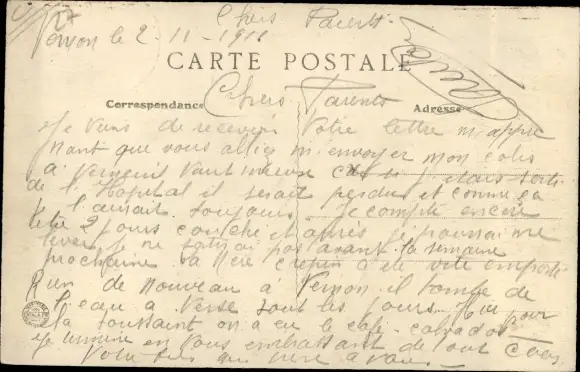 Chers Parents
Vernon le 2-11-1911
CARTE POSTALE
Correspondance
Adresse
Chers Parents
Je viens de recevoir Votre lettre m'appre
nant que vous alliez m'envoyer mon colis
a Verneuil Vaut mieux si j'étais sorti
de l'hopital il serait perdu et comme ça
je l'aurait toujours je compte encore
être 2 jours couché et après je pourrai me
lever je ne sortirai pas avant la semaine
prochaine la Mere Crepin a été vite emporté
Rien de Nouveau a Vernon il tombe de
l'eau a Verse tout les jours Hier pour
la toussaint on a eu le café calvados
Je termine en vous embrassant de tout Coeur
Votre fils qui pense a vous